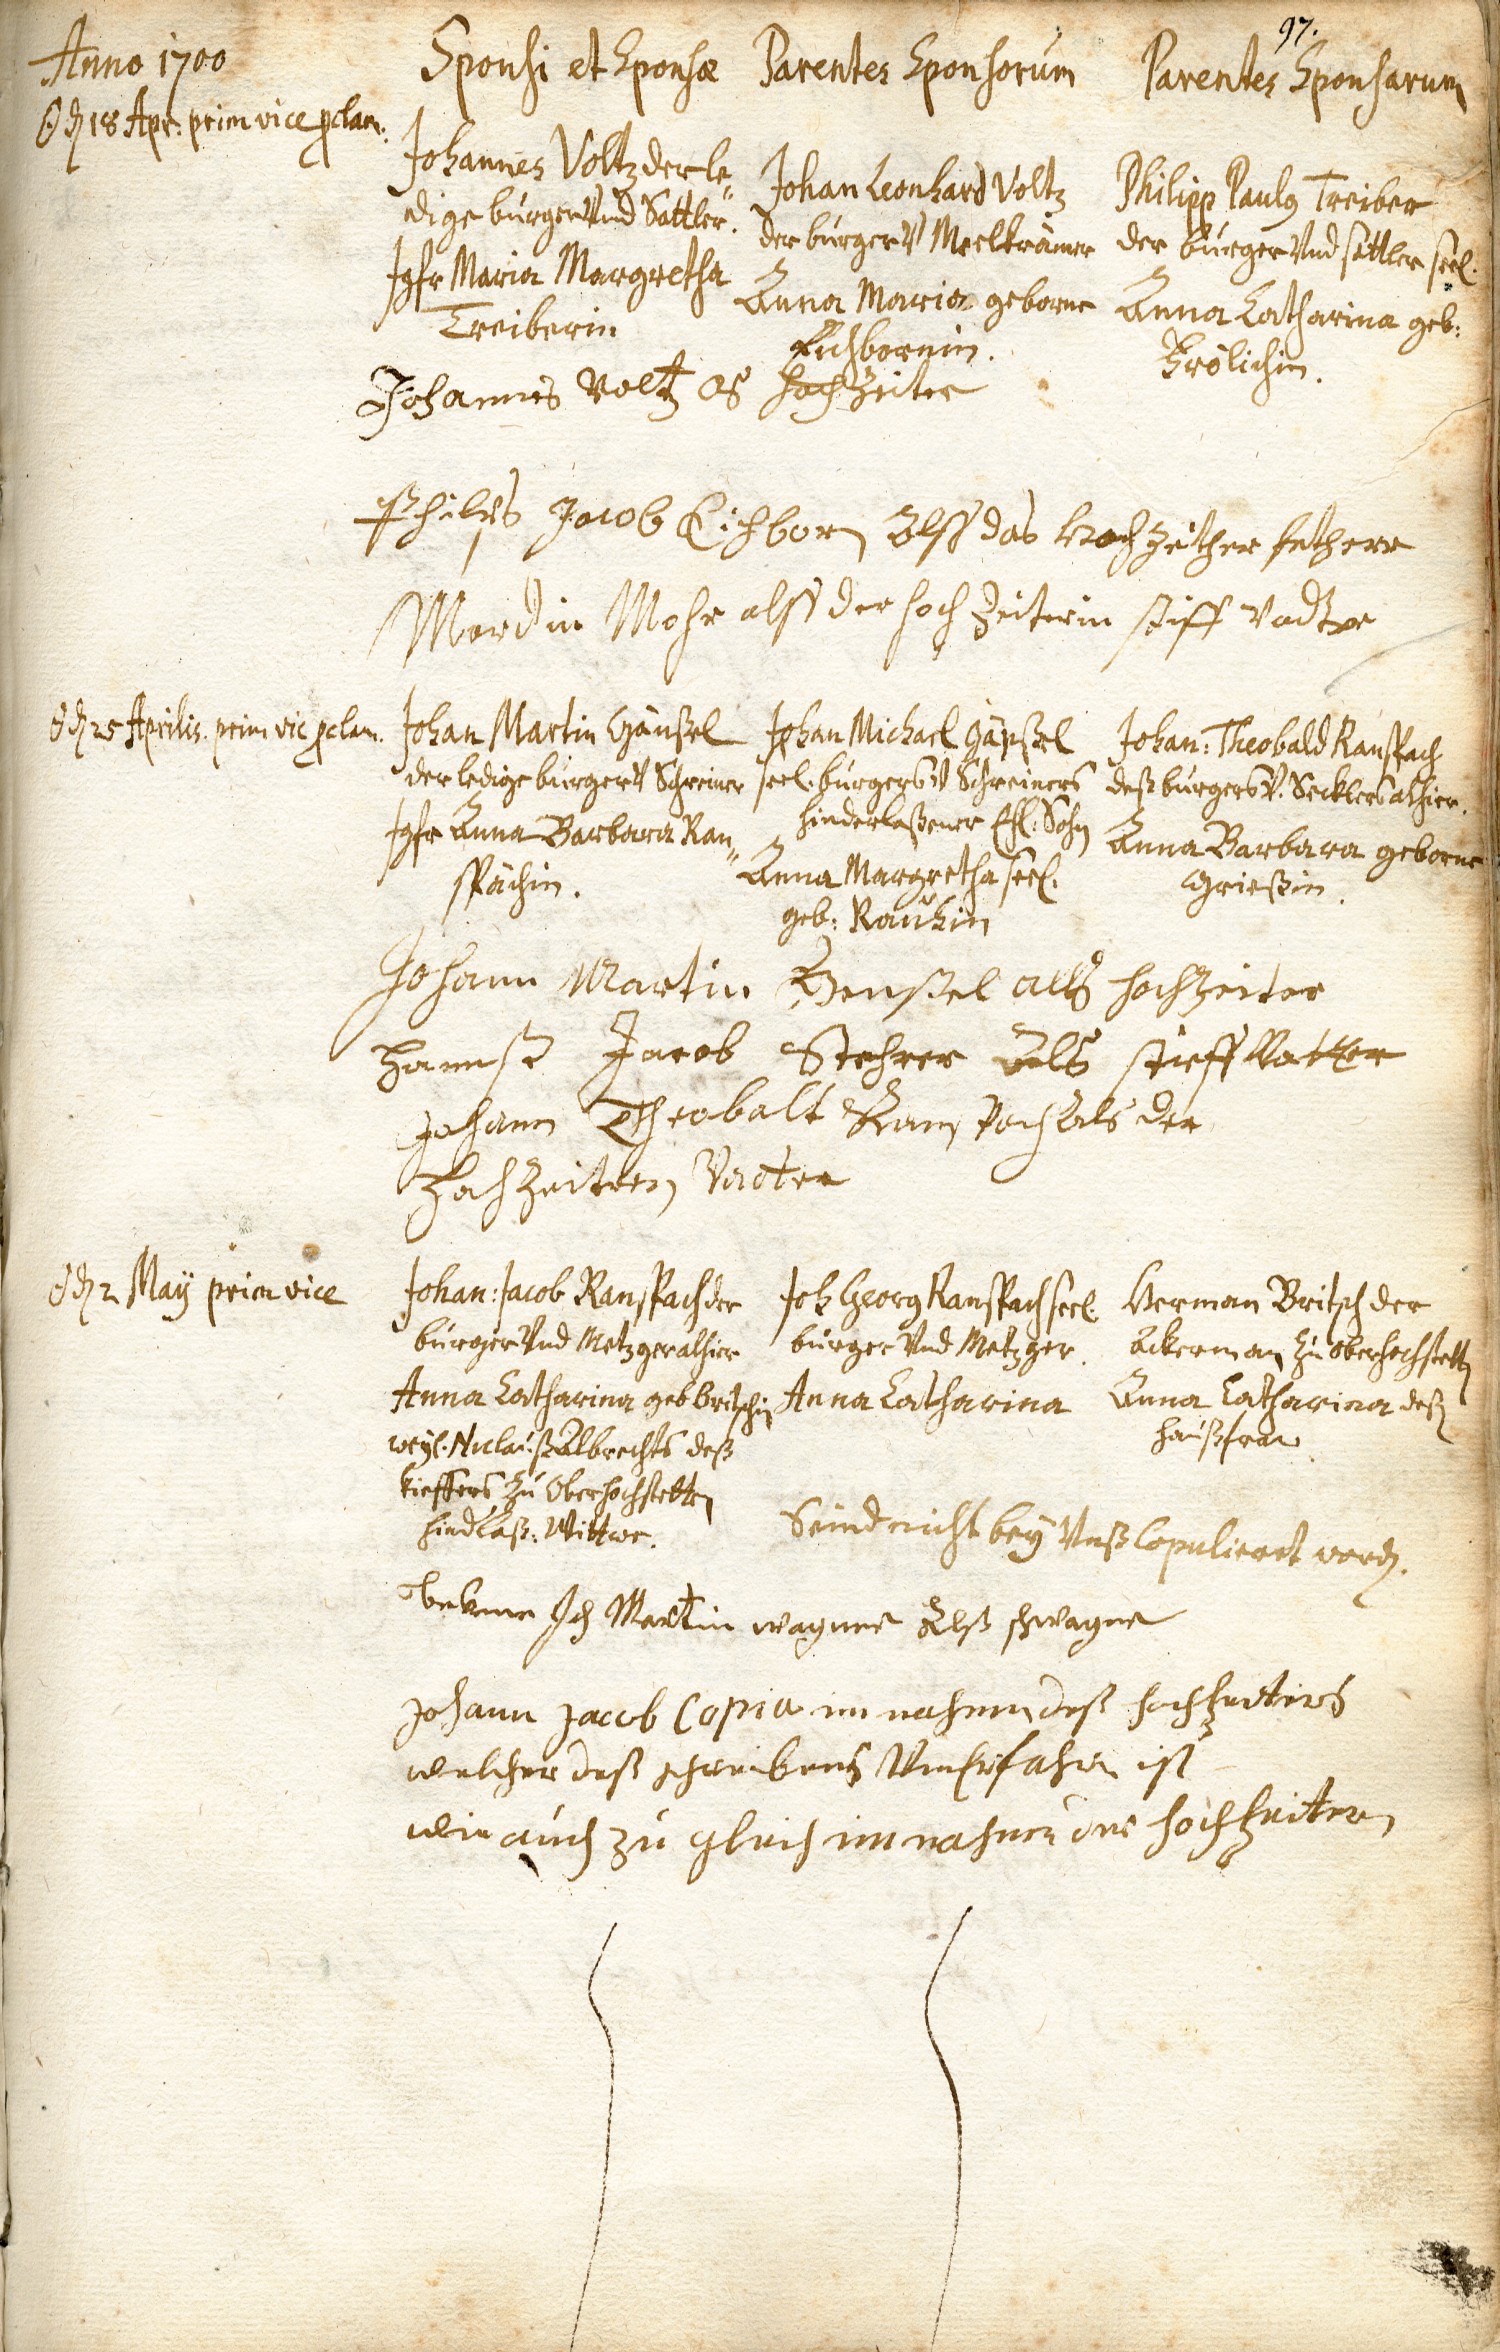 97.
Anno 1700
Sponsi et Sponsæ
Parentes Sponsorum
Parentes Sponsarum
18 Apr: prim vice pclam.
Johannes Voltz der le„
dige burger Und Sattler.
Jgfr Maria Margretha
Treiberin
Johan Leonhard Voltz
der burger V Meelkrämer
Anna Maria geborne
Eichbornin.
Philipp Paulg Treiber
der burger Und sattler seel.
Anna Catharina geb:
Frölichin.
Johannes Voltz als hochZeiter
Philips Jacob Eichborn Alss das hochzeither
Mardin Mohr alss der hochZeiterin stiff vadter
25 Aprilis. prim vic pclam.
Johan Martin Gänßel
der ledige burger V Schreiner
Jgfr Anna Barbara Ran„
spächin.
Johan Michael Gänßel
seel. burgers V Schreiners
hinderlaßener Ehl: Sohn
Anna Margretha seel.
geb: Rauhin
Johan: Theobald Ranspach
deß burgers V. Secklers alhier.
Anna Barbara geborne
Grießin.
Johann Martin Genßel alls hochZeiter
Hannß Jacob Stehrer Als stieff Vatter
Johann Theobalt Ranspach Als der
HochZeitern Vacter
2 Maÿ prim vice
Johan: Jacob Ranspach der
burger Und Metzger alhier
Anna Catharina geb Britschin
weyl. Niclauß Albrechts deß
kieffers zu Oberhochstetten
hindlaß: Wittwe.
Joh Georg Ranspach seel.
burger Und Metzger.
Anna Catharina
Herman Britsch der
Ackerman zu Oberhochstetten
Anna Catharina deß
haußfrau
Seind nicht bey Unß Copulieret word.
bekene Ich Martin wagner Alß schwager
Johann Jacob Copia im nahmen deß hochzeiters
welcher deß schreibens UnErfahren ist
wie auch zu gleich im nahmen der hochzeitern